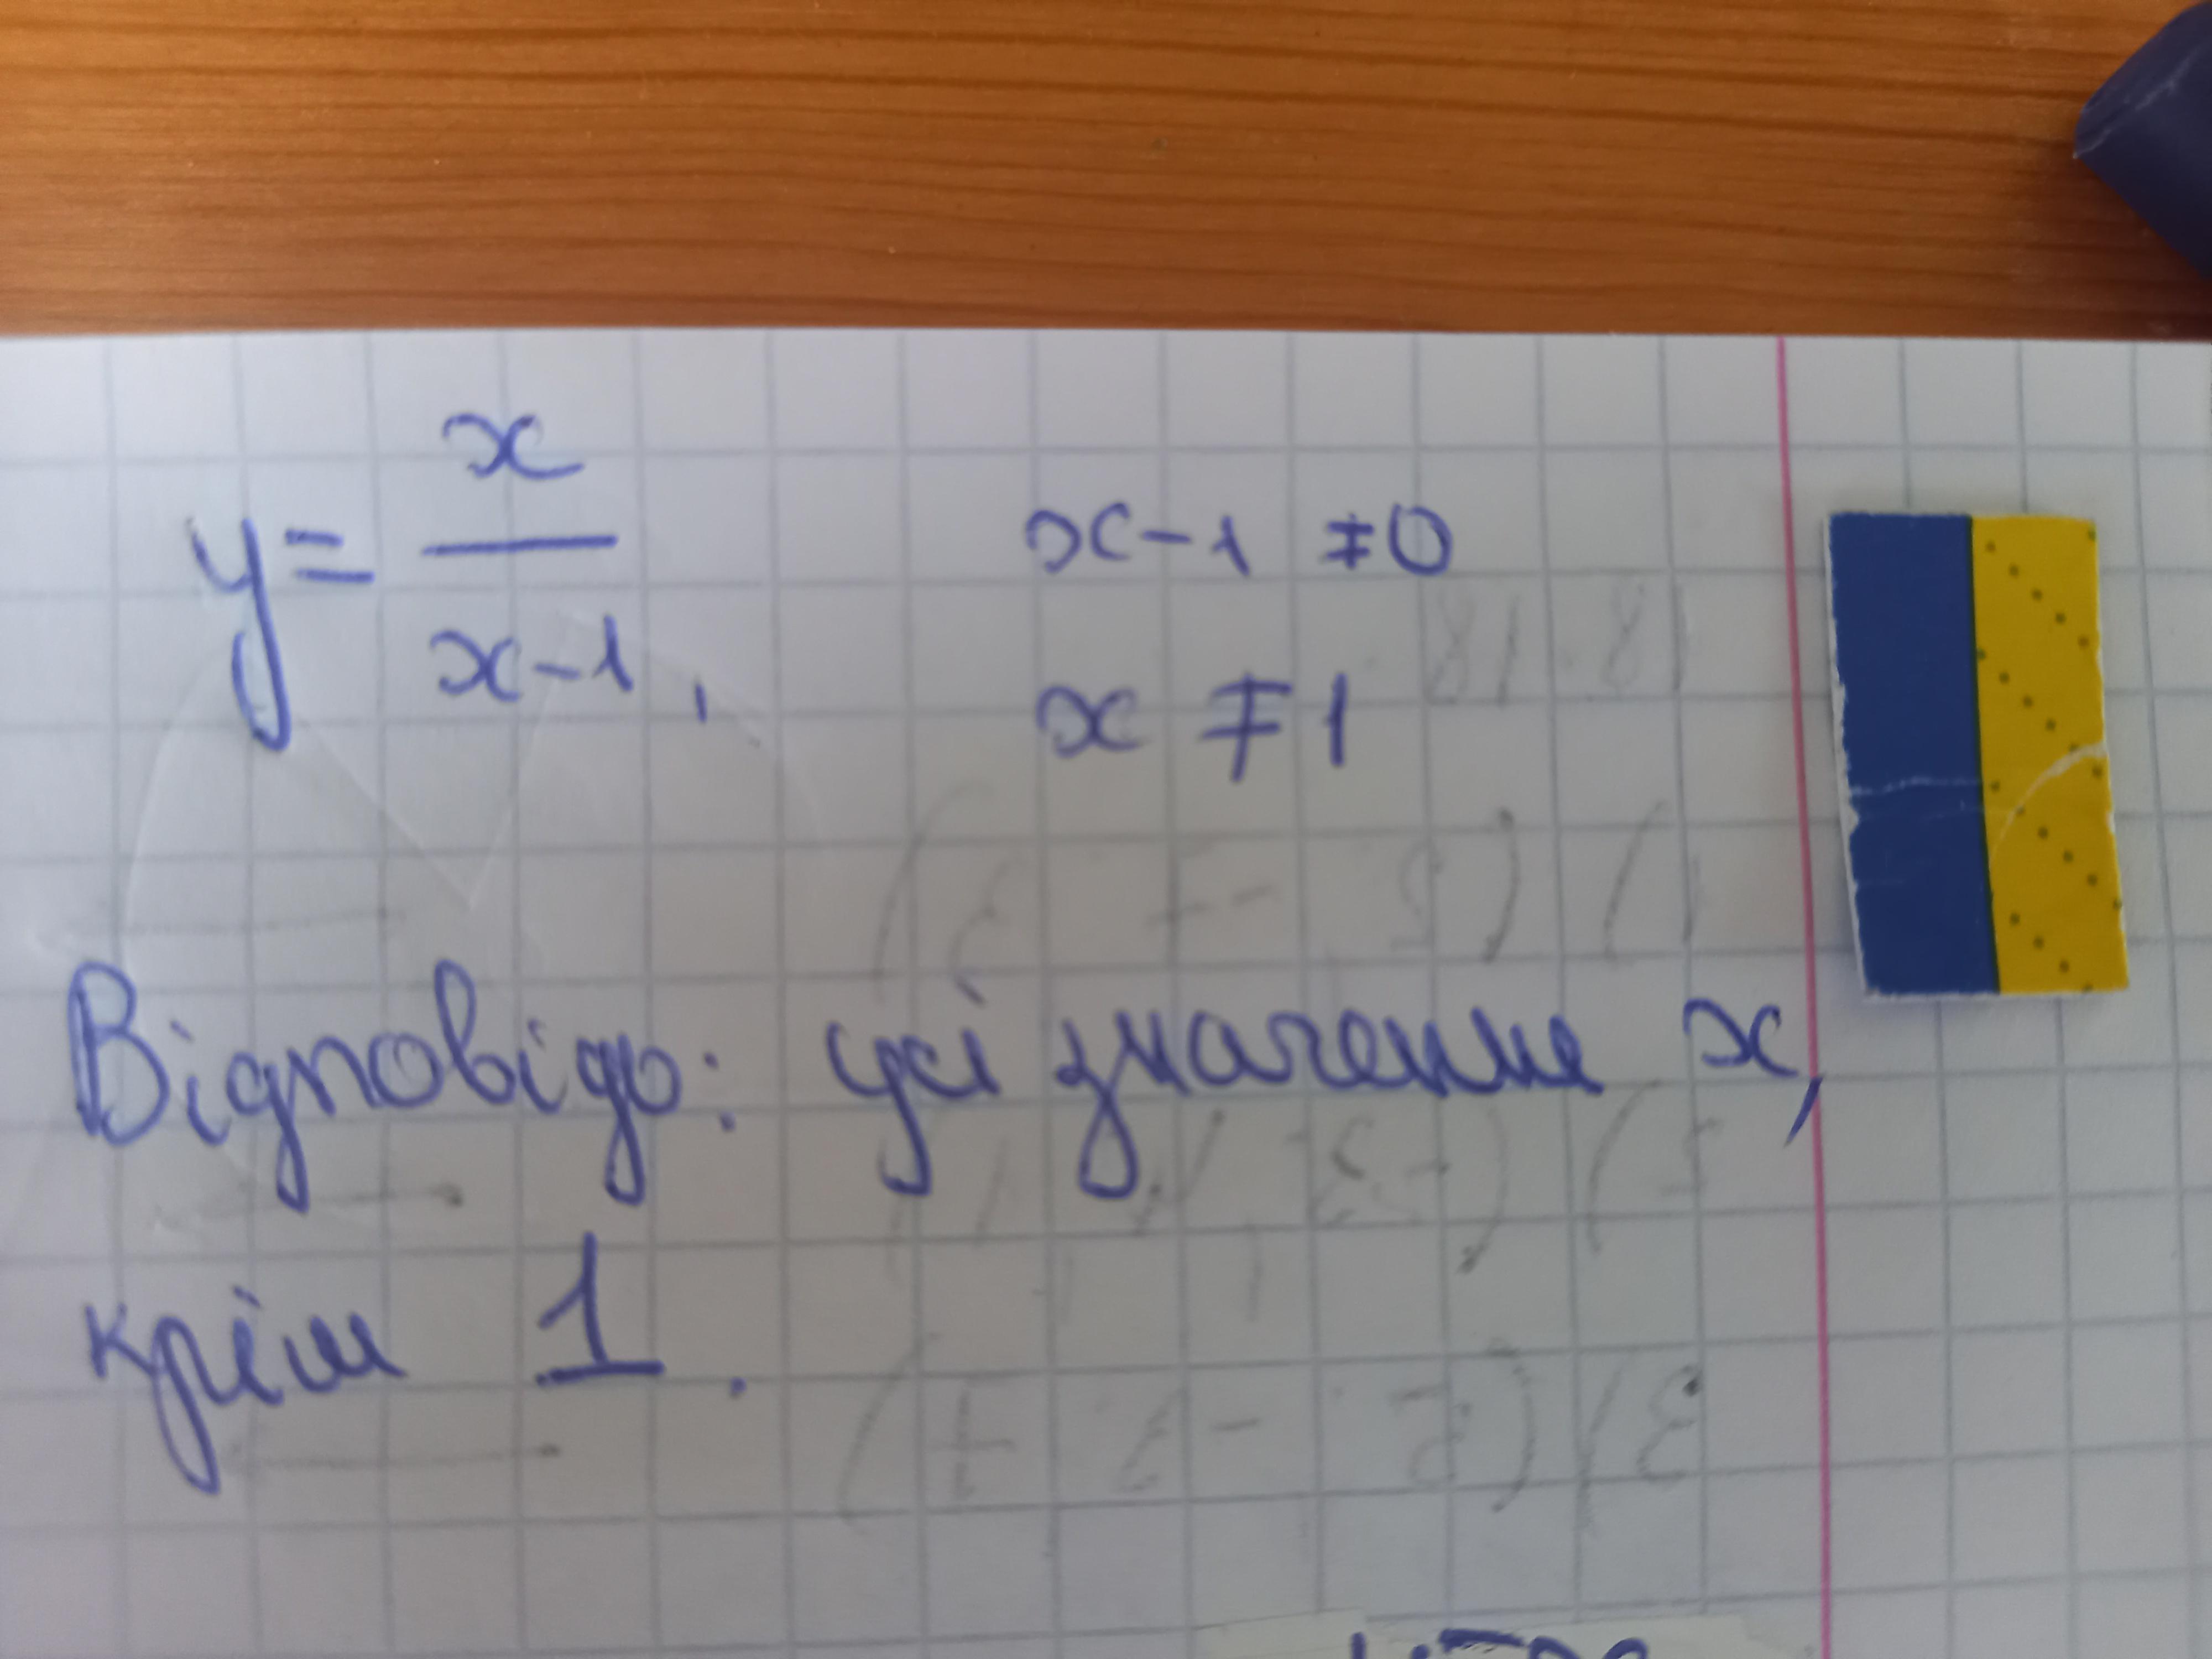 y = x / (x - 1),
x - 1 ≠ 0
x ≠ 1
Відповідь: усі значення x,
крім 1.